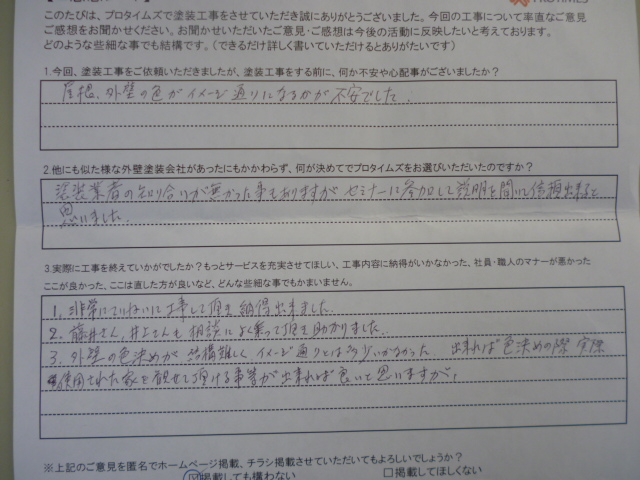 このたびは、プロタイムズで塗装工事をさせていただき誠にありがとうございました。今回の工事について率直なご意見
ご感想をお聞かせください。お聞かせいただいたご意見・ご感想は今後の活動に反映したいと考えております。
どのような些細な事でも結構です。（できるだけ詳しく書いていただけるとありがたいです）
1.今回、塗装工事をご依頼いただきましたが、塗装工事をする前に、何か不安や心配事がございましたか？
屋根、外壁の色がイメージ通りになるかが不安でした。
2.他にも似た様な外壁塗装会社があったにもかかわらず、何が決めてでプロタイムズをお選びいただいたのですか？
塗装業者の知り合いが無かった事もありますがセミナーに参加して説明を聞いて信頼出来ると
思いました。
3.実際に工事を終えていかがでしたか？もっとサービスを充実させてほしい、工事内容に納得がいかなかった、社員・職人のマナーが悪かった
ここが良かった、ここは直した方が良いなど、どんな些細な事でもかまいません。
1. 非常にていねいに工事して頂き納得出来ました。
2. 藤井さん、井上さんも相談によく乗って頂き助かりました。
3. 外壁の色決めが結構難しくイメージ通りとは少しいかなかった 出来れば色決めの際 実際
使用された家を観せて頂ける事等が出来れば良いと思いますが。
※上記のご意見を匿名でホームページ掲載、チラシ掲載させていただいてもよろしいでしょうか？
☑掲載しても構わない □掲載してほしくない